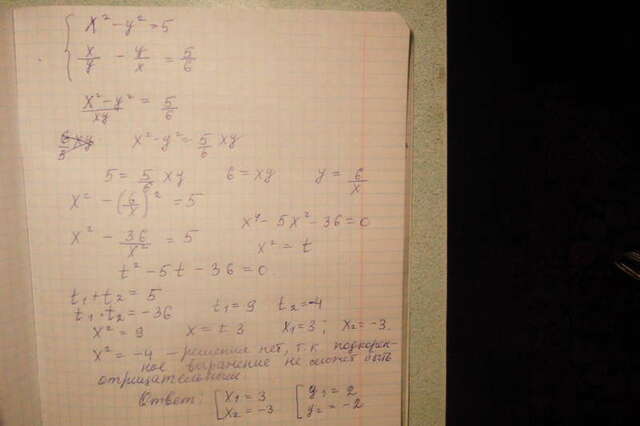 { x² - y² = 5
x/y - y/x = 5/6
(x² - y²)/xy = 5/6
x² - y² = 5/6 xy
5 = 5/6 xy 6 = xy y = 6/x
x² - (6/x)² = 5
x⁴ - 5x² - 36 = 0
x² - 36/x² = 5
x² = t
t² - 5t - 36 = 0
t₁ + t₂ = 5
t₁ · t₂ = -36 t₁ = 9 t₂ = -4
x² = 9 x = ± 3 x₁ = 3; x₂ = -3.
x² = -4 - решения нет, т.к подкорен-
ное выражение не может быть
отрицательным.
Ответ: [ x₁ = 3 [ y₁ = 2
x₂ = -3 y₂ = -2